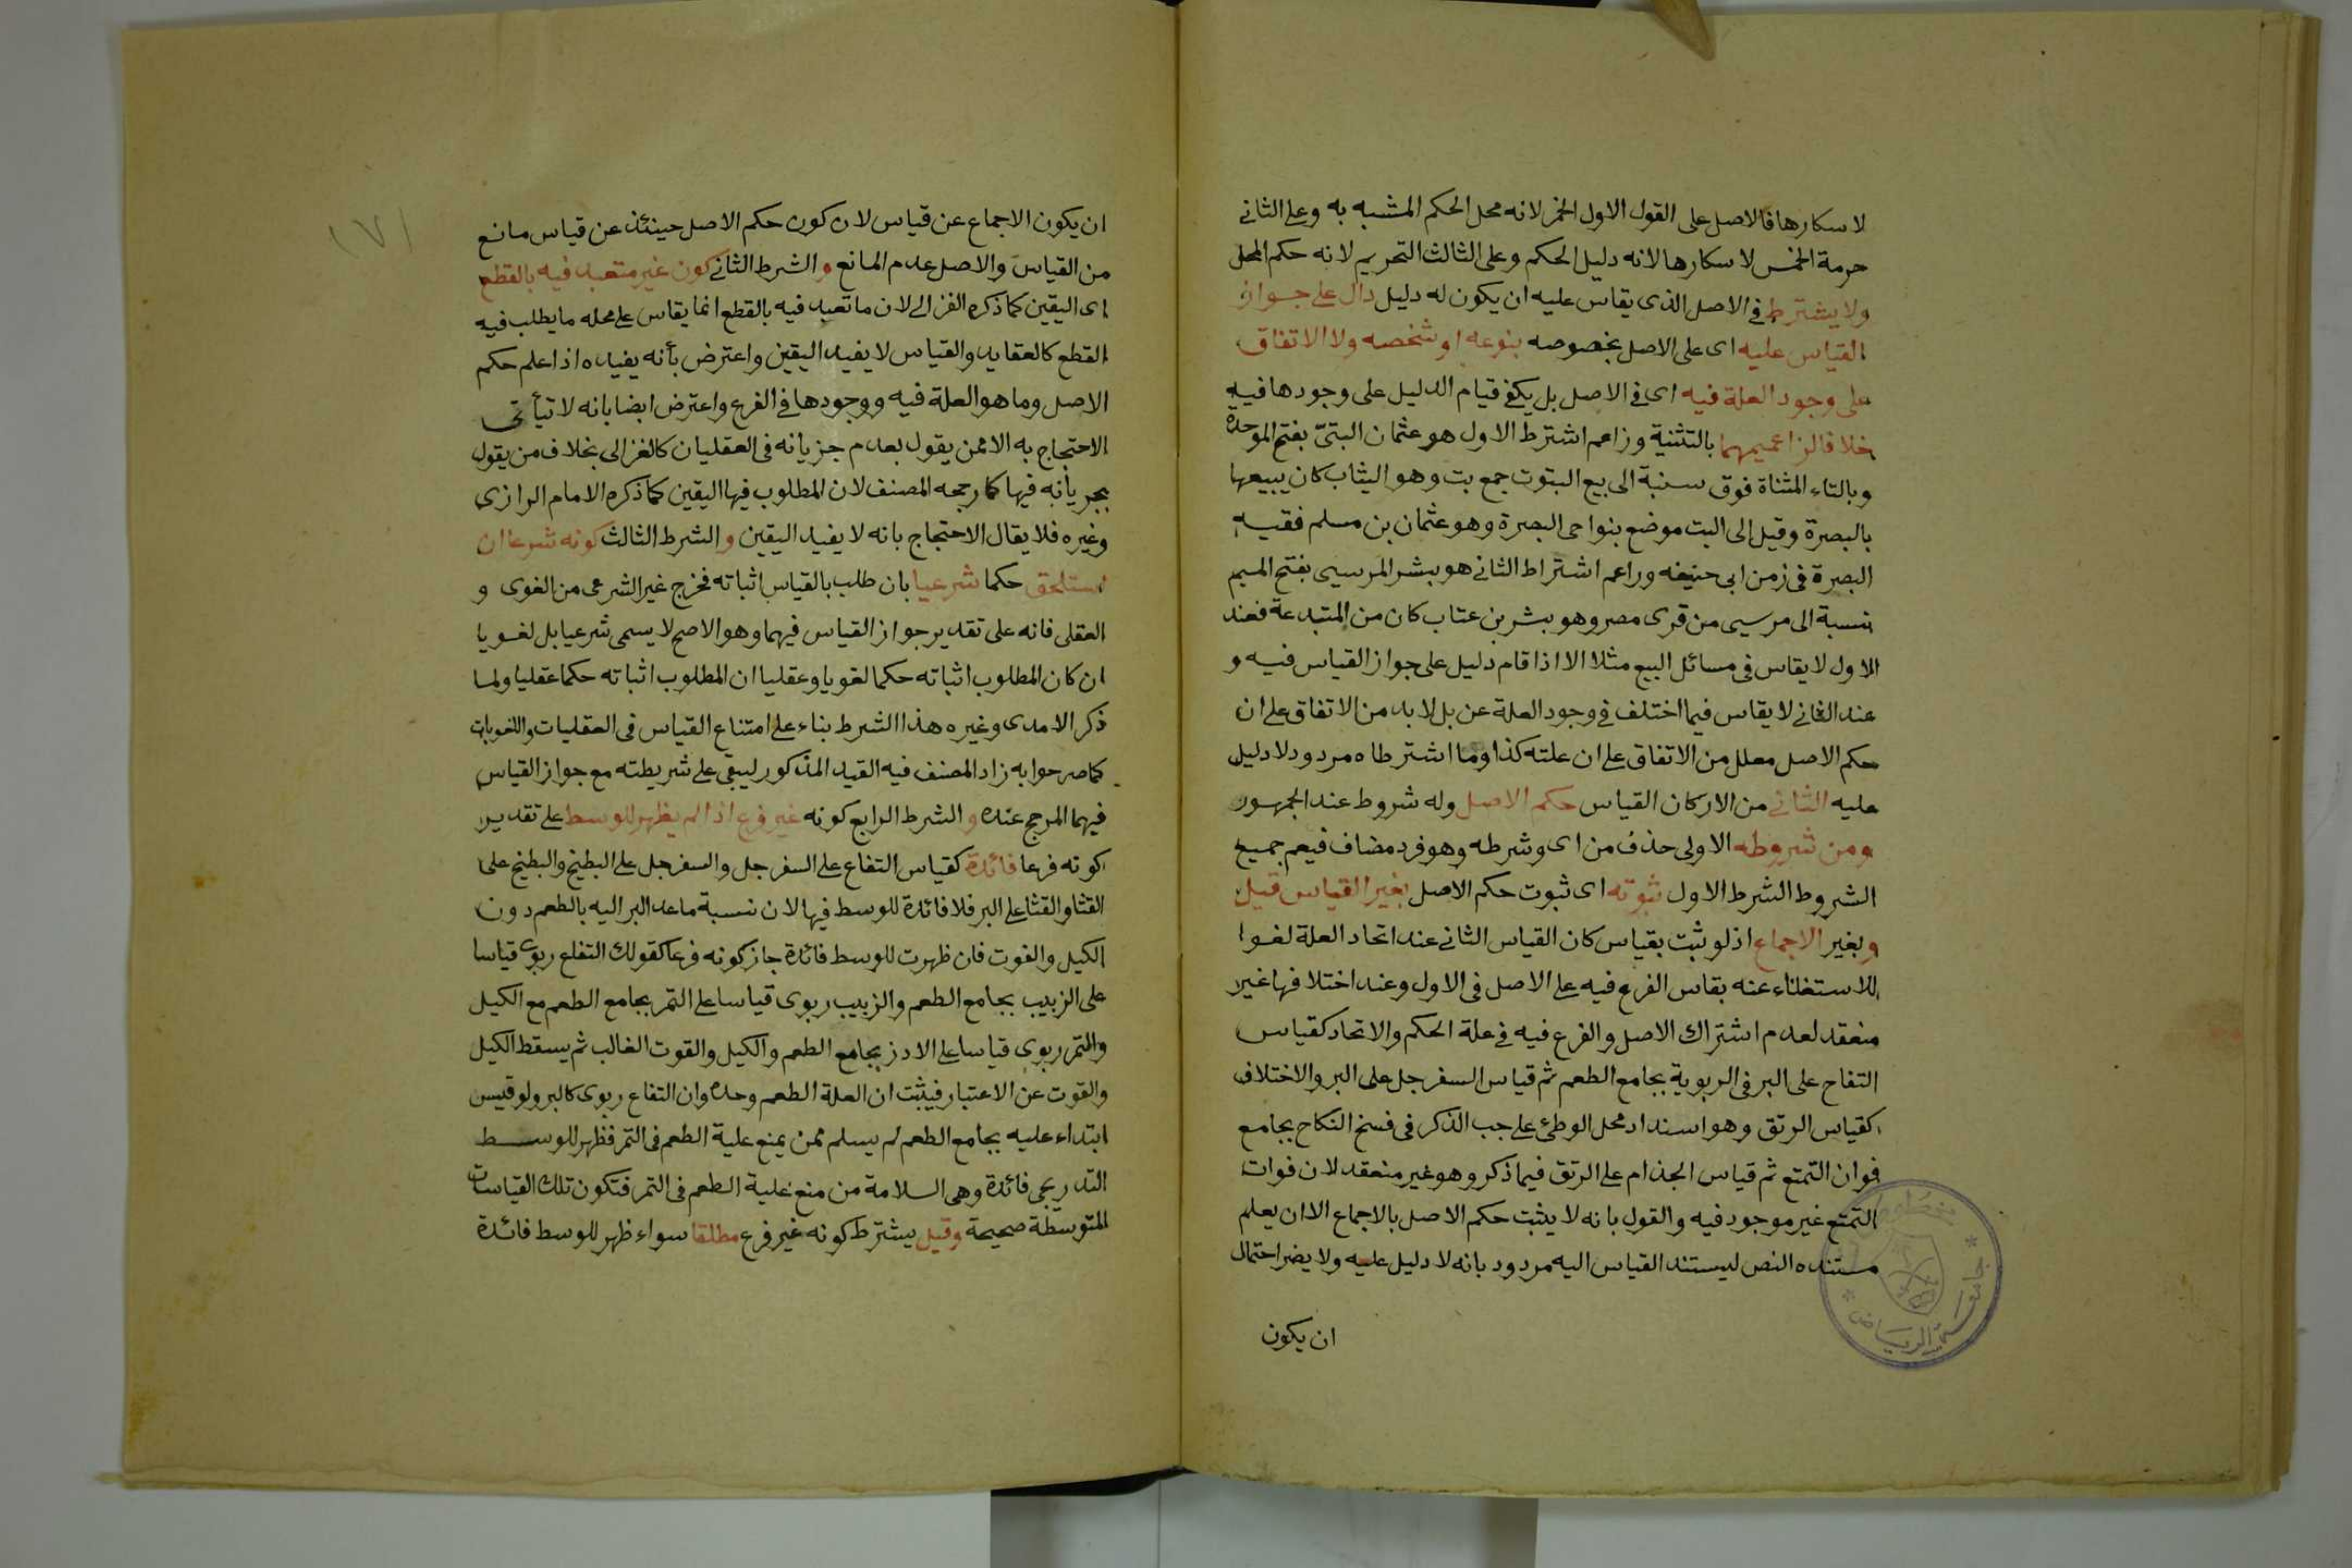 لاسكارها فالاصل على القول الاول الخمر لانه محل الحكم المشبه به وعلى الثانى
حرمة الخمر لاسكارها لانه دليل الحكم وعلى الثالث التحريم لانه حكم المحل
ولا يشترط فى الاصل الذى يقاس عليه ان يكون له دليل دال على جواز
القياس عليه اى على الاصل بخصوصه بنوعه او شخصه ولا الاتفاق
على وجود العلة فيه اى فى الاصل بل يكفى قيام الدليل على وجودها فيه
خلافا لزاعميهما بالتثنية وزاعم اشترط الاول هو عثمان البتىّ بفتح الموحدة
وبالتاء المثناة فوق سنبة الى بيع البتوت جمع بت وهو الثياب كان يبيعها
بالبصرة وقيل الى البت موضع بنواحى البصرة وهو عثمان بن مسلم فقيه
البصرة فى زمن ابى حنيفه وراعم اشتراط الثانى هو بشر المرسيى بفتح الميم
نسبة الى مرسيى من قرى مصر وهو بشر بن عتاب كان من المتبدعة فعند
الاول لا يقاس فى مسائل البيع مثلا الا اذا قام دليل على جواز القياس فيه و
عند الثانى لا يقاس فيما اختلف فى وجود العلة عن بل لابد من الاتفاق على ان
حكم الاصل معلل من الاتفاق على ان علته كذا وما اشترطاه مردود لا دليل
عليه الثانى من الاركان القياس حكم الاصل وله شروط عند الجمهور
ومن شروطه الاولى حذف من اى وشرطه وهو فرد مضاف فيعم جميع
الشروط الشرط الاول ثبوته اى ثبوت حكم الاصل بغير القياس قيل
وبغير الاجماع اذ لو ثبت بقياس كان القياس الثانى عند اتحاد العلة لغوا
للاستغناء عنه بقاس الفرع فيه على الاصل فى الاول وعند اختلافها غير
منعقد لعدم اشتراك الاصل والفرع فيه فى علة الحكم والاتحاد كقياس
التفاح على البر فى الربوية بجامع الطعم ثم قياس السفرجل على البر والاختلاف
كقياس الرتق وهو اسنداد محل الوطئ على جب الذكر فى فسخ النكاح بجامع
فوان التمتع ثم قياس الجذام على الرتق فيما ذكر وهو غير منعقد لان فوات
التمتع غير موجود فيه والقول بانه لا يثبت حكم الاصل بالاجماع الا ان يعلم
مستنده النص ليستند القياس اليه مردود بانه لا دليل عليه ولا يضر احتمال
ان يكون
جامعة الرياض
١٧١
ان يكون الاجماع عن قياس لان كون حكم الاصل حينئذ عن قياس مانع
من القياس والاصل عدم المانع و الشرط الثانى كون غير متعبد فيه بالقطع
اى اليقين كما ذكره الغزالى لان ما تعبد فيه بالقطع انما يقاس على محله ما يطلب فيه
القطع كالعقايد والقياس لا يفيد اليقين واعترض بأنه يفيده اذا علم حكم
الاصل وما هو العلة فيه ووجودها فى الفرع واعترض ايضا بانه لا تيأتى
الاحتجاج به الا ممن يقول بعدم جزيأنه فى العقليان كالغزالى بخلاف من يقول
بجريأنه فيها كما رجحه المصنف لان المطلوب فيها اليقين كما ذكره الامام الرازى
وغيره فلا يقال الاحتجاج بانه لا يفيد اليقين و الشرط الثالث كونه شرعا ان
استلحق حكما شرعيا بان طلب بالقياس اثباته فخرج غير الشرعى من الغوى و
العقلى فانه على تقدير جواز القياس فيهما وهو الاصح لا يسمى شرعيا بل لغويا
ان كان المطلوب اثباته حكما لغويا وعقليا ان المطلوب اثباته حكما عقليا ولما
ذكر الامدى وغيره هذا الشرط بناء على امتناع القياس فى العقليات واللغويات
كما صرحوا به زاد المصنف فيه القيد المذكور ليبقى على شريطته مع جواز القياس
فيهما المرجح عنده و الشرط الرابع كونه غير فرع اذا لم يظهر للوسط على تقدير
كونه فرعا فائدة كقياس التفاع على السفرجل والسفرجل على البطيخ والبطيخ على
القثا والقثا على البر فلا فائدة للوسط فيها لان نسبة ما عد البر اليه بالطعم دون
الكيل والغوت فان ظهرت للوسط فائدة جاز كونه فرعا كقولك التفاع ربوى قياسا
على الزبيب بجامع الطعم والزبيب ربوى قياسا على التمر بجامع الطعم مع الكيل
والتمر ربوى قياسا على الادز بجامع الطعم والكيل والقوت الغالب ثم يسقط الكيل
والقوت عن الاعتبار فيثبت ان العلة الطعم وحده وان التفاع ربوى كالبر ولو قيس
ابتداء عليه بجامع الطعم لم يسلم ممن يمنع علية الطعم فى التمر فظهر للوسط
التدريجى فائدة وهى السلامة من منع علية الطعم فى التمر فتكون تلك القياسات
المتوسطة صحيحة وقيل يشترط كونه غير فرع مطلقا سواء ظهر للوسط فائدة